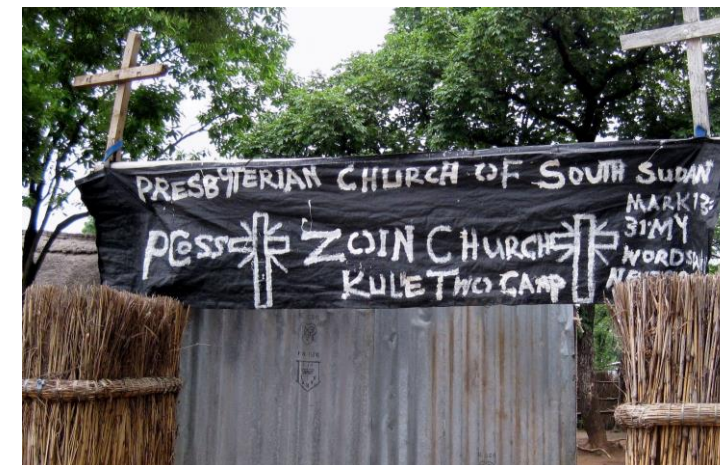 PRESBYTERIAN CHURCH OF SOUTH SUDAN
PCOSS ZOIN CHURCH
KULE TWO CAMP
MARK 13:
31 MY
WORDS